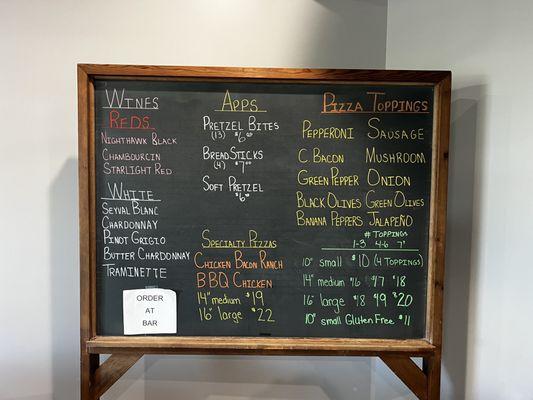 WINES
REDS
NIGHTHAWK BLACK
CHAMBOURCIN
STARLIGHT RED
WHITE
SEYVAL BLANC
CHARDONNAY
PINOT GRIGIO
BUTTER CHARDONNAY
TRAMINETTE
ORDER
AT
BAR
APPS
PRETZEL BITES
(13) $6
BREADSTICKS
(4) $7
SOFT PRETZEL
$6
SPECIALTY PIZZAS
CHICKEN BACON RANCH
BBQ CHICKEN
14" medium $19
16" large $22
PIZZA TOPPINGS
PEPPERONI SAUSAGE
C. BACON MUSHROOM
GREEN PEPPER ONION
BLACK OLIVES GREEN OLIVES
BANANA PEPPERS JALAPEÑO
# TOPPINGS
1-3 4-6 7+
10" small $10 (4 TOPPINGS)
14" medium $16 $17 $18
16" large $18 $19 $20
10" small Gluten Free $11